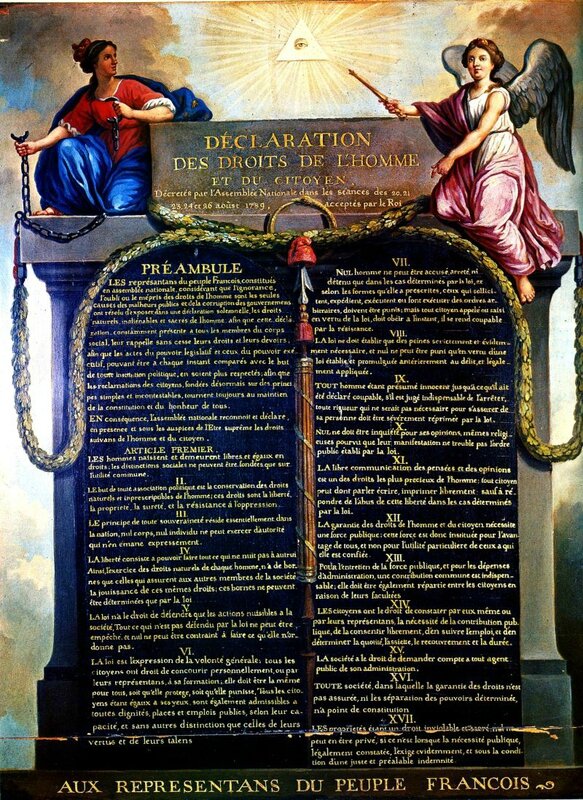 DÉCLARATION
DES DROITS DE L'HOMME
ET DU CITOYEN
Décretés par l'Assemblée Nationale dans les séances des 20, 21
23, 24 et 26 août 1789, acceptés par le Roi
PRÉAMBULE
LES représentans du peuple Francois, constitués
en assemblée nationale, considérant que l'ignorance,
l'oubli ou le mépris des droits de l'homme sont les seules
causes des malheurs publics et de la corruption des gouvernemens
ont résolu d'exposer dans une déclaration solemnelle, les droits
naturels, inaliénables et sacrés de l'homme; afin que cette décla
ration, constamment présente a tous les membres du corps
social, leur rappelle sans cesse leurs droits et leurs devoirs,
afin que les actes du pouvoir legislatif et ceux du pouvoir exé
cutif, pouvant être a chaque instant comparés avec le but
de toute institution politique, en soient plus respectés; afin que
les reclamations des citoyens, fondées désormais sur des princi
pes simples et incontestables, tournent toujours au maintien
de la constitution et du bonheur de tous.
EN conséquence, l'assemblée nationale reconnoit et déclare,
en présence et sous les auspices de l'Etre suprême les droits
suivans de l'homme et du citoyen.
ARTICLE PREMIER.
LES hommes naissent et demeurent libres et égaux en
droits; les distinctions sociales ne peuvent être fondées que sur
l'utilité commune.
II.
LE but de toute association politique est la conservation des droits
naturels et inprescriptibles de l'homme; ces droits sont la liberté,
la propriete, la sureté, et la résistance à l'oppression.
III.
LE principe de toute souveraineté réside essentiellement dans
la nation, nul corps, nul individu ne peut exercer d'autorité
qui n'en émane expressement.
IV.
LA liberté consiste a pouvoir faire tout ce qui ne nuit pas à autrui
Ainsi, l'exercice des droits naturels de chaque homme, n'a de bor-
nes que celles qui assurent aux autres membres de la société
la jouissance de ces mêmes droits; ces bornes ne peuvent
être déterminées que par la loi
V.
LA loi n'a le droit de défendre que les actions nuisibles a la
société. Tout ce qui n'est pas défendu par la loi ne peut être
empêché, et nul ne peut être contraint à faire ce qu'elle n'or-
donne pas.
VI.
LA loi est l'expression de la volonté générale; tous les
citoyens ont droit de concourir personnellement, ou par
leurs représentans, à sa formation; elle doit être la même
pour tous, soit qu'elle protege, soit qu'elle punisse, Tous les cito
yens étant égaux a ses yeux, sont également admissibles a
toutes dignités, places et emplois publics, selon leur ca-
pacité, et sans autres distinction que celles de leurs
vertus et de leurs talens
VII.
NUL homme ne peut être accusé, arreté, ni
détenu que dans les cas déterminés par la loi, et
selon les formes qu'elle a prescrites, ceux qui sollici-
tent, expédient, exécutent ou font exécuter des ordres ar-
bitraires, doivent être punis; mais tout citoyen appelé ou saisi
en vertu de la loi, doit obéir a l'instant, il se rend coupable
par la résistance.
VIII.
LA loi ne doit établir que des peines strictement et évidem-
ment nécessaire, et nul ne peut être puni qu'en vertu d'une
loi établie et promulguée antérierement au délit, et légale
ment appliquée.
IX.
TOUT homme étant présumé innocent jusqu'a ce qu'il ait
été déclaré coupable, s'il est jugé indispensable de l'arrêter,
toute rigueur qui ne serait pas nécessaire pour s'assurer de
sa personne doit être sévèrement réprimée par la loi.
X.
NUL ne doit être inquiété pour ses opinions, mêmes religi
euses pourvu que leur manifestation ne trouble pas l'ordre
public établi par la loi.
XI.
LA libre communication des pensées et des opinions est
un des droits les plus precieux de l'homme; tout citoyen
peut dont parler écrire, imprimer librement: sauf à ré
pondre de l'abus de cette liberté dans les cas déterminés
par la loi.
XII.
LA garantie des droits de l'homme et du citoyen nécessite
une force publique; cette force est donc instituée pour l'avan
tage de tous, et non pour l'utilité particuliere de ceux a qui
elle est confiée.
XIII.
Pour l'entretien de la force publique, et pour les dépenses
d'administration, une contribution commune est indispen-
sable; elle doit être également répartie entre les citoyens en
raison de leurs facultées
XIV.
LES citoyens ont le droit de constater par eux même ou
par leurs représentans, la nécessité de la contribution pub
lique, de la consentir librement, d'en suivre l'emploi, et d'en
déterminer la quotité, l'assiette, le recouvrement et la durée.
XV.
LA société a le droit de demander compte a tout agent
public de son administration.
XVI.
TOUTE société, dans laquelle la garantie des droits n'est
pas assurée, ni la séparation des pouvoirs déterminée,
n'a point de constitution
XVII.
LES propriétés étant un droit inviolable et sacré, nul ne
peut en être privé, si ce n'est lorsque la nécessité publique,
légalement constatée, l'exige evidemment, et sous la condi
tion d'une juste et préalable indemnité.
AUX REPRESENTANS DU PEUPLE FRANCOIS